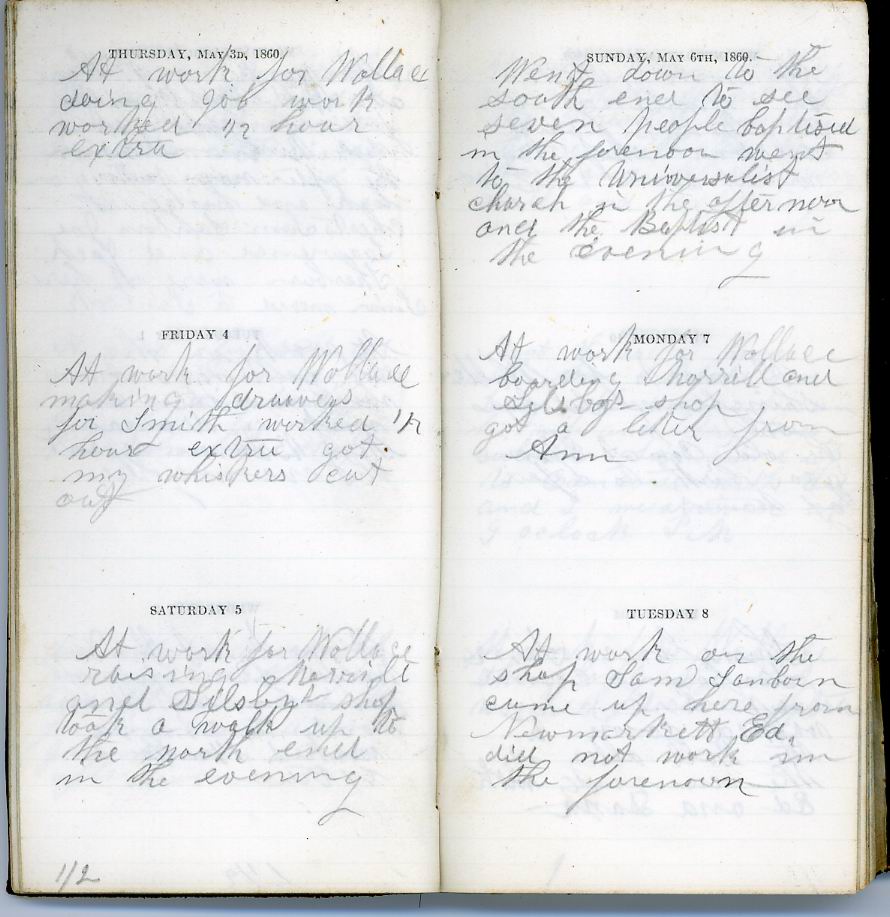 THURSDAY, MAY 3D, 1860.
At work for Wallace
doing job work
worked 1/2 hour
extra
FRIDAY 4
At work for Wallace
making drawers
for Smith worked 1/2
hour extra got
my whiskers cut
out
SATURDAY 5
At work for Wallace
raising Merrill
and Silsbys shop
took a walk up to
the north end
in the evening
1/2
SUNDAY, MAY 6TH, 1860.
Went down to the
south end to see
seven people baptised
in the forenoon went
to the Universalist
church in the afternoon
and the Baptist in
the evening
MONDAY 7
At work for Wallace
boarding Merrill and
Silsbys shop
got a letter from
Ann
TUESDAY 8
At work on the
shop Sam Sanborn
came up here from
Newmarkett Ed,
did not work inn
the forenown